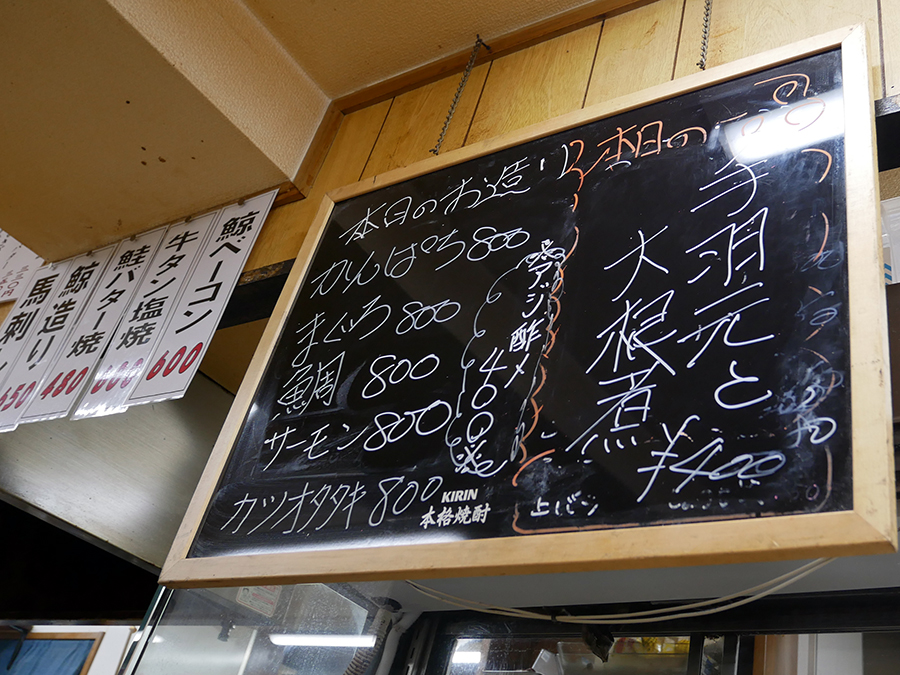 本日のお造り
かんぱち 800
まぐろ 800
鯛 800
サーモン 800
カツオタタキ 800
アジ酢〆
400
KIRIN
本格焼酎
本日の
手羽元と
大根煮
¥400
鯨ベーコン 600
牛タン塩焼
鮭バター焼 600
鯨造り 480
馬刺し 650